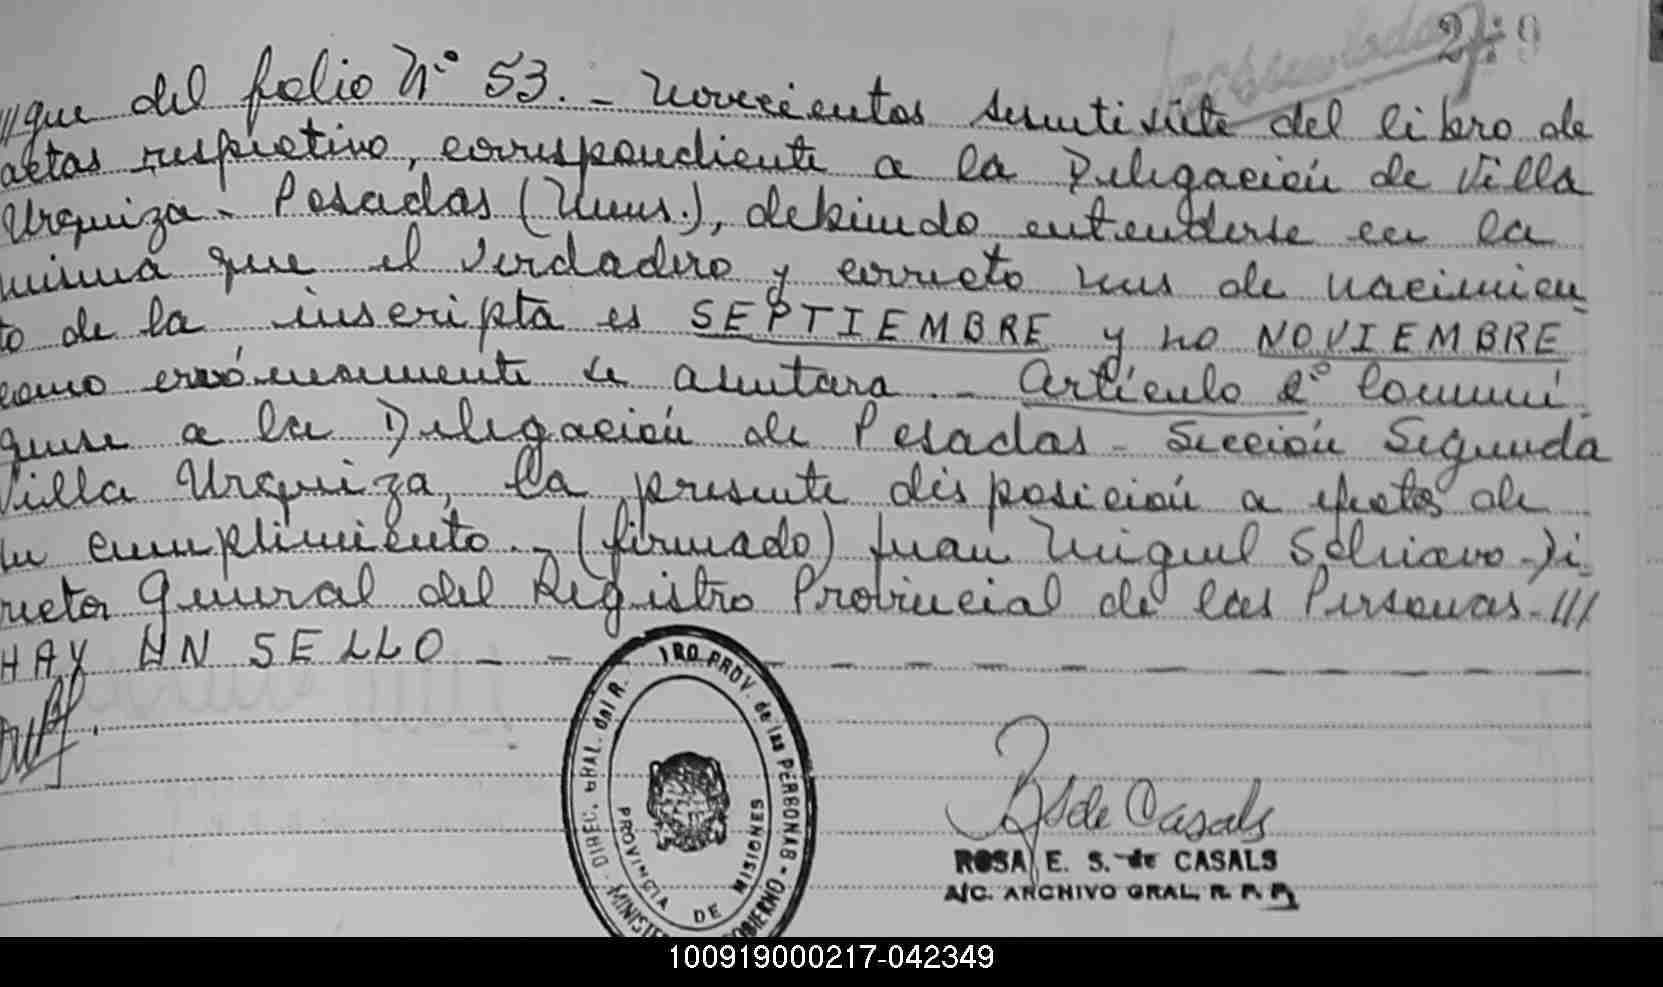 ///gue del folio Nº 53. - novecientos sesentisiete del libro de
actas respectivo, correspondiente a la Delegación de Villa
Urquiza - Posadas (Mnes.), debiendo entenderse en la
misma que el verdadero y correcto mes de nacimien
to de la inscripta es SEPTIEMBRE y no NOVIEMBRE
como erróneamente se asentara. - Artículo 2º Comuní
quese a la Delegación de Posadas - Sección Segunda
Villa Urquiza, la presente disposición a efectos de
su cumplimiento. - (firmado) Juan Miguel Schiavo - Di
rector General del Registro Provincial de las Personas - ///
HAY UN SELLO
DIREC. GRAL. del R. PROV. de las PERSONAS
PROVINCIA DE MISIONES
R S de Casals
ROSA E. S. de CASALS
A/C. ARCHIVO GRAL. R. P. P.
100919000217-042349